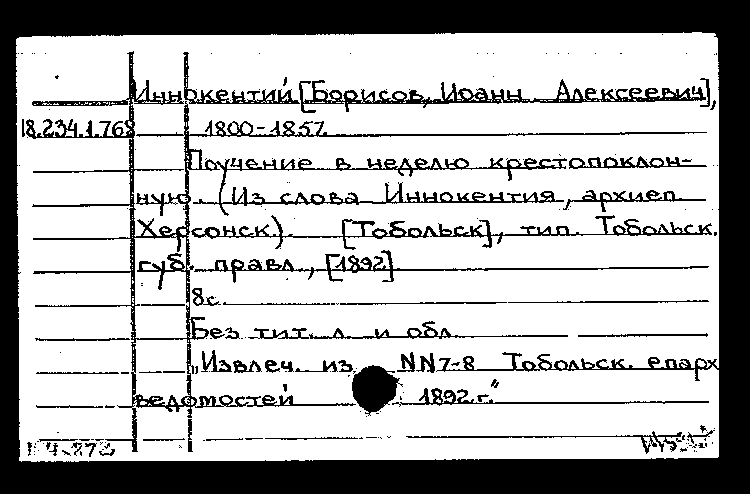 Иннокентий [Борисов, Иоанн Алексеевич],
18.234.1.768 1800-1857.
Поучение в неделю крестопоклон-
ную. (Из слова Иннокентия, архиеп.
Херсонск.). [Тобольск], тип. Тобольск.
губ. правл., [1892]
8с.
Без тит. л. и обл.
„Извлеч. из NN7-8 Тобольск. епарх
ведомостей 1892.г."